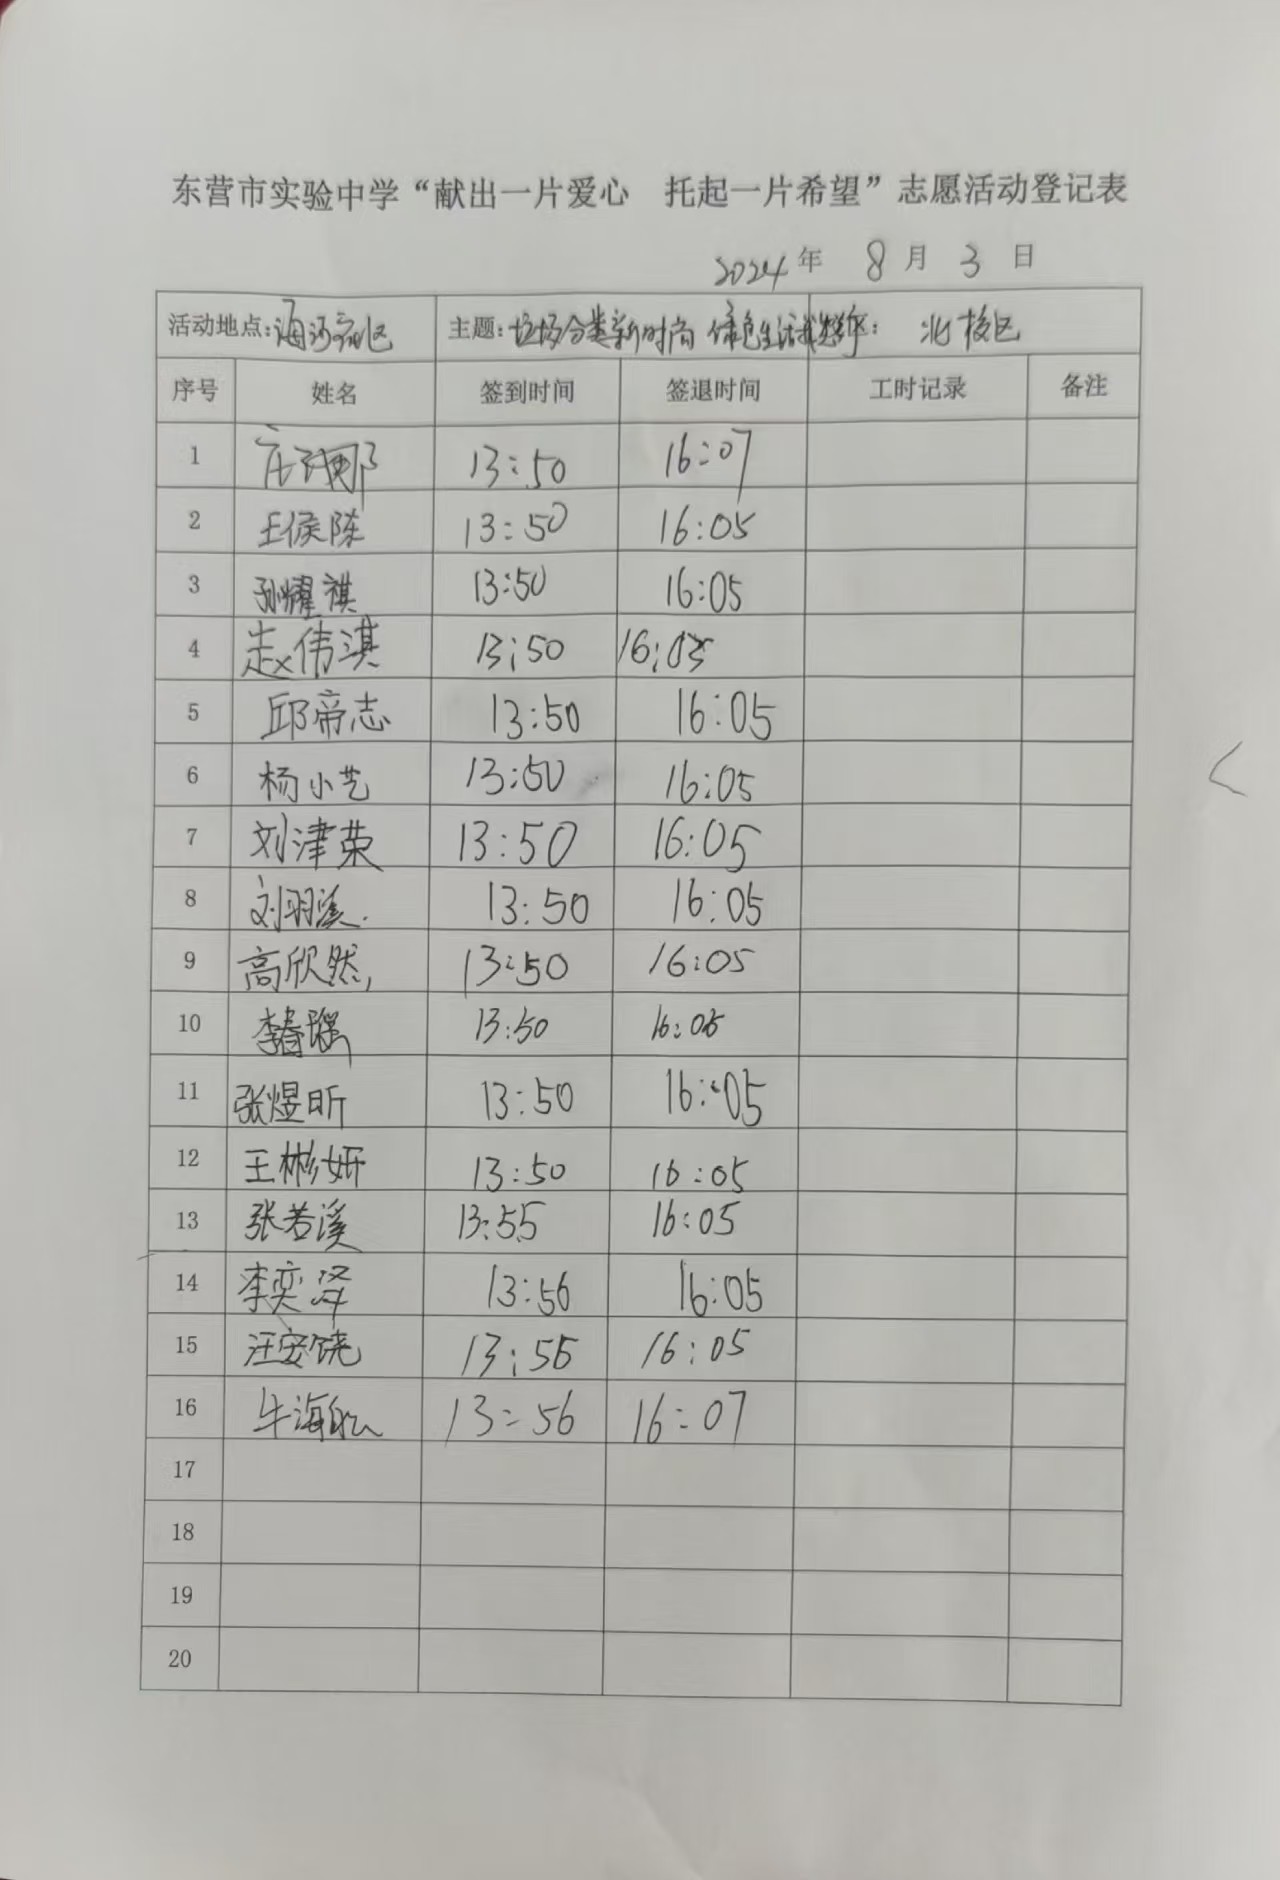 东营市实验中学“献出一片爱心 托起一片希望”志愿活动登记表
2024年 8月 3日
活动地点: 海河 区 主题: 垃圾分类新时尚 绿色生活我 : 北校区
序号 姓名 签到时间 签退时间 工时记录 备注
1 13:50 16:07
2 王侯陈 13:50 16:05
3 孙耀祺 13:50 16:05
4 赵伟淇 13:50 16:05
5 邱帝志 13:50 16:05
6 杨小艺 13:50 16:05
7 刘津荣 13:50 16:05
8 刘羽溪 13:50 16:05
9 高欣然 13:50 16:05
10 李春瑶 13:50 16:05
11 张煜昕 13:50 16:05
12 王彬妍 13:50 16:05
13 张若溪 13:55 16:05
14 李奕泽 13:56 16:05
15 汪安饶 13:56 16:05
16 牛海航 13:56 16:07
17
18
19
20